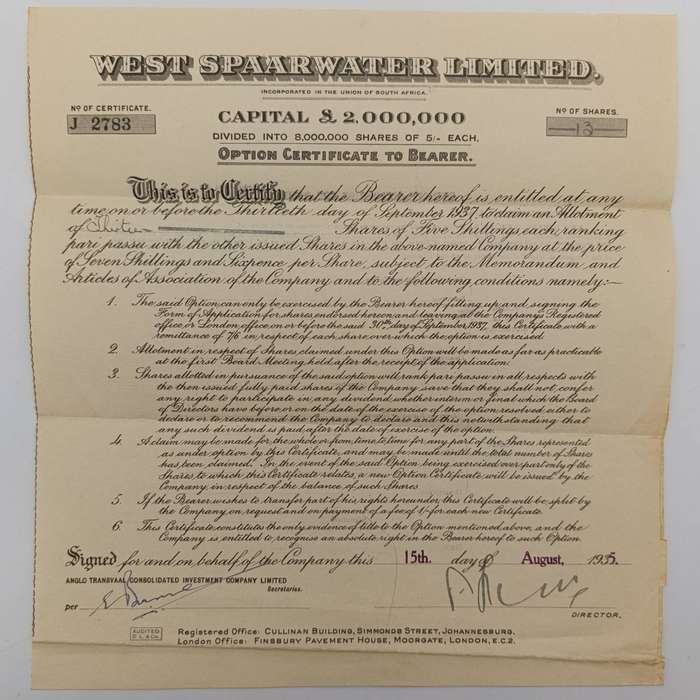 WEST SPAARWATER LIMITED.
INCORPORATED IN THE UNION OF SOUTH AFRICA.
No OF CERTIFICATE.
J 2783
CAPITAL £ 2,000,000
No OF SHARES.
13
DIVIDED INTO 8,000,000 SHARES OF 5/- EACH,
OPTION CERTIFICATE TO BEARER.
This is to Certify that the Bearer hereof is entitled at any
time on or before the Thirtieth day of September 1937 to claim an Allotment
of Thirteen Shares of Five Shillings each, ranking
pari passu with the other issued Shares in the above-named Company at the price
of Seven Shillings and Sixpence per Share, subject to the Memorandum and
Articles of Association of the Company and to the following conditions namely:—
1. The said Option can only be exercised by the Bearer hereof filling up and signing the
Form of Application for shares endorsed hereon and leaving at the Company's Registered
office or London office on or before the said 30th day of September, 1937, this Certificate with a
remittance of 7/6 in respect of each share over which the option is exercised.
2. Allotment in respect of Shares claimed under this Option will be made as far as practicable
at the first Board Meeting held after the receipt of the application.
3. Shares allotted in pursuance of the said option will rank pari passu in all respects with
the then issued fully paid shares of the Company save that they shall not confer
any right to participate in any dividend whether interim or final which the Board
of Directors have before or on the date of the exercise of the option resolved either to
declare or to recommend the Company to declare and this notwithstanding that
any such dividend is paid after the date of exercise of the option.
4. A claim may be made for the whole or from time to time for any part of the Shares represented
as under option by this Certificate, and may be made until the total number of Shares
has been claimed. In the event of the said Option being exercised over part only of the
Shares to which this Certificate relates, a new Option Certificate will be issued by the
Company in respect of the balance of such Shares.
5. If the Bearer wishes to transfer part of his rights hereunder, this Certificate will be split by
the Company on request and on payment of a fee of 1/- for each new Certificate.
6. This Certificate constitutes the only evidence of title to the Option mentioned above, and the
Company is entitled to recognise an absolute right in the Bearer hereof to such Option.
Signed for and on behalf of the Company this 15th. day of August, 1935.
ANGLO TRANSVAAL CONSOLIDATED INVESTMENT COMPANY LIMITED
Secretaries.
per
DIRECTOR.
AUDITED
Registered Office: CULLINAN BUILDING, SIMMONDS STREET, JOHANNESBURG.
London Office: FINSBURY PAVEMENT HOUSE, MOORGATE, LONDON, E.C.2.